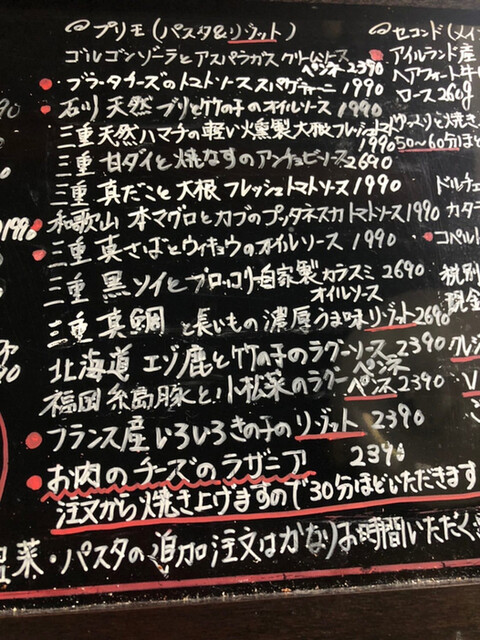 プリモ(パスタ&リゾット)
ゴルゴンゾーラとアスパラガスクリームソース
ペンネ 2390
ブラータチーズのトマトソーススパゲティーニ 1990
石川 天然ブリと竹の子のオイルソース 1990
三重 天然ハマチの軽い燻製大根フレッシュトマト
1990
三重 甘ダイと焼なすのアンチョビソース 2690
三重 真だこと大根フレッシュトマトソース 1990
和歌山 本マグロとカブのプッタネスカトマトソース 1990
三重 真さばとウイキョウのオイルソース 1990
三重 黒ソイとブロッコリー自家製カラスミ 2690
オイルソース
三重 真鯛と長いもの濃厚うま味リゾット 2690
北海道 エゾ鹿と竹の子のラグーソース 2390
ペンネ
福岡糸島豚と小松菜のラグーペンネ 2390
フランス産いろいろきの子のリゾット 2390
お肉のチーズのラザニア 2390
注文から焼き上げますので30分ほどいただきます
菜・パスタの追加注文はかなりお時間いただく
セコンド(メイ
アイルランド産
ヘアフォート牛
ロース 260g
50〜60分ほど
ドルチェ
カタラ
コペルト
税別
現金
クレジ